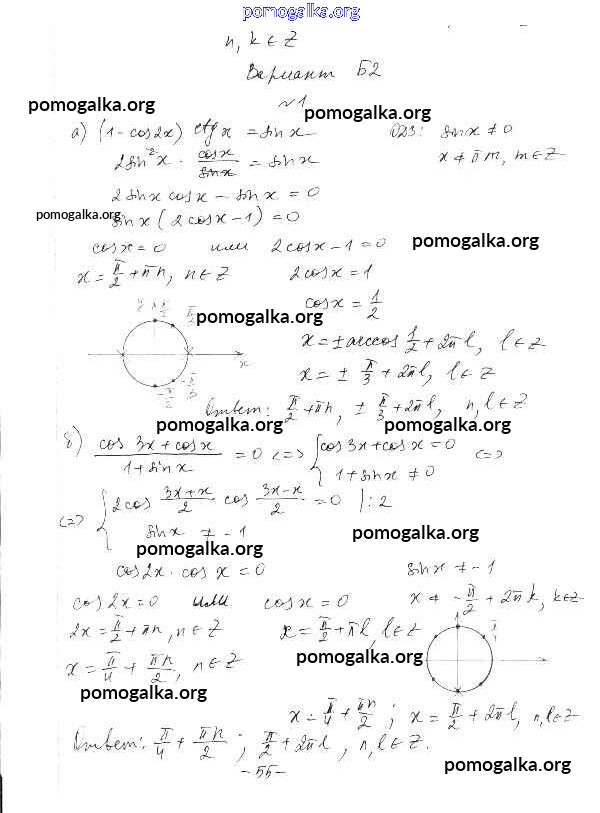 pomogalka.org
n, k ∈ Z
Вариант Б2
pomogalka.org
№1
pomogalka.org
а) (1 - cos2x) ctg x = sin x
ОДЗ: sin x ≠ 0
2sin²x · cosx/sinx = sin x
x ≠ πm, m ∈ Z
2 sinx cosx - sinx = 0
pomogalka.org
sinx (2cosx - 1) = 0
cosx = 0 или 2cosx - 1 = 0
pomogalka.org
x = π/2 + πn, n ∈ Z
2cosx = 1
cosx = 1/2
y π/2 π/3
pomogalka.org
x = ± arccos 1/2 + 2πl, l ∈ Z
x
x = ± π/3 + 2πl, l ∈ Z
-π/2 -π/3
Ответ: π/2 + πn, ± π/3 + 2πl, n, l ∈ Z
pomogalka.org
pomogalka.org
б) cos 3x + cosx / 1 + sin x = 0 <=> { cos 3x + cosx = 0
1 + sinx ≠ 0 <=>
<=> { 2cos 3x+x/2 cos 3x-x/2 = 0 |:2
sinx ≠ -1
pomogalka.org
pomogalka.org
cos2x · cos x = 0
sin x ≠ -1
cos2x = 0 или cosx = 0
x ≠ -π/2 + 2πk, k ∈ Z
2x = π/2 + πn, n ∈ Z
x = π/2 + πl, l ∈ Z
π/4
pomogalka.org
x = π/4 + πn/2, n ∈ Z
pomogalka.org
x = π/4 + πn/2; x = π/2 + 2πl, n, l ∈ Z
Ответ: π/4 + πn/2; π/2 + 2πl, n, l ∈ Z.
-55-
pomogalka.org